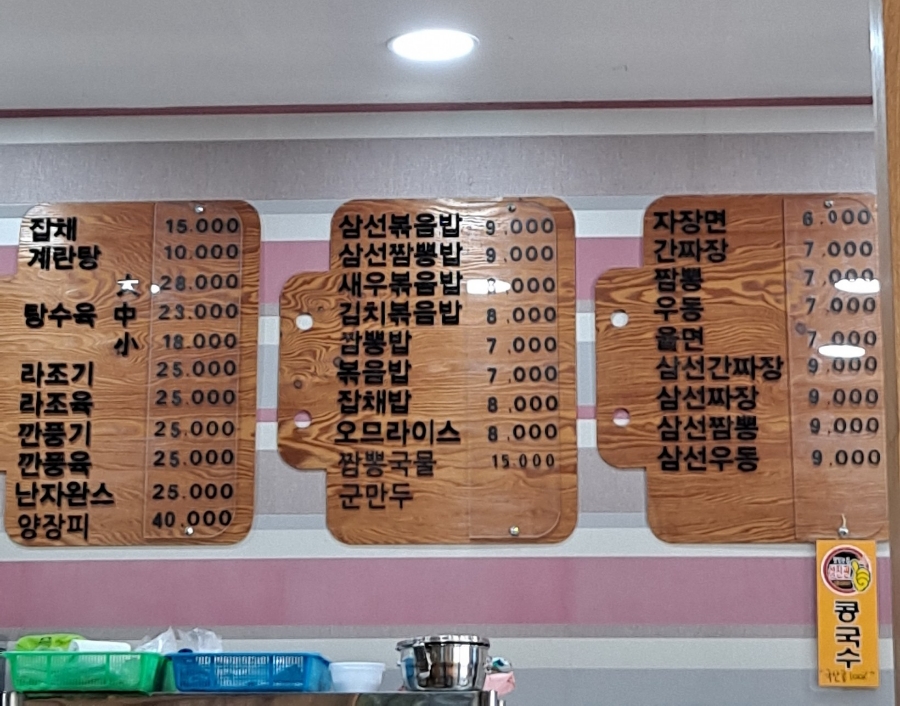 잡채 15.000
계란탕 10.000
大 28.000
탕수육 中 23.000
小 18.000
라조기 25.000
라조육 25.000
깐풍기 25.000
깐풍육 25.000
난자완스 25.000
양장피 40.000
삼선볶음밥 9.000
삼선짬뽕밥 9.000
새우볶음밥 .000
김치볶음밥 8.000
짬뽕밥 7.000
볶음밥 7.000
잡채밥 8.000
오므라이스 8.000
짬뽕국물 15.000
군만두
자장면 6.000
간짜장 7.000
짬뽕 7.000
우동 7.000
울면 7.000
삼선간짜장 9.000
삼선짜장 9.000
삼선짬뽕 9.000
삼선우동 9.000
콩국수